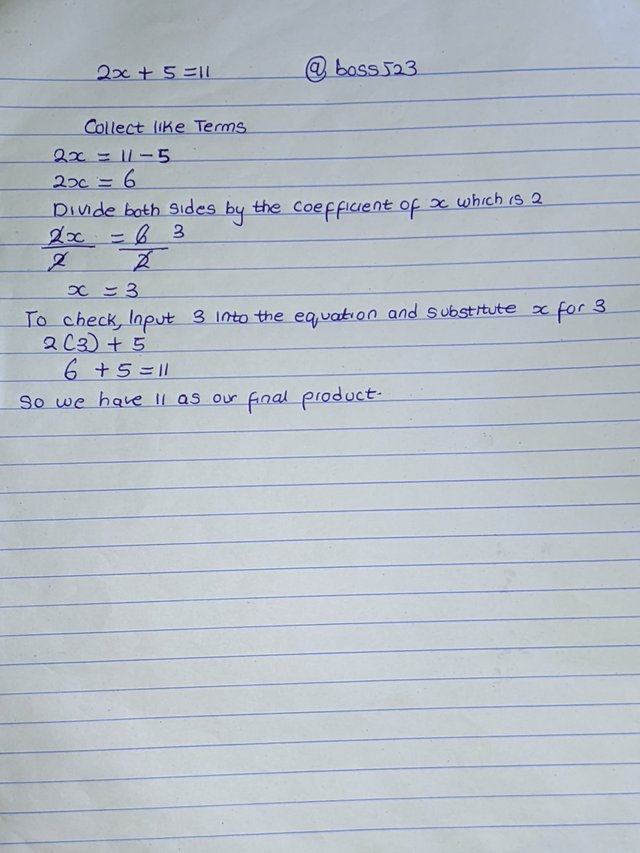 2x + 5 = 11 @boss523
Collect like Terms
2x = 11 - 5
2x = 6
Divide both sides by the coefficient of x which is 2
2x = 6 3
2 2
x = 3
To check, Input 3 into the equation and substitute x for 3
2(3) + 5
6 + 5 = 11
So we have 11 as our final product.